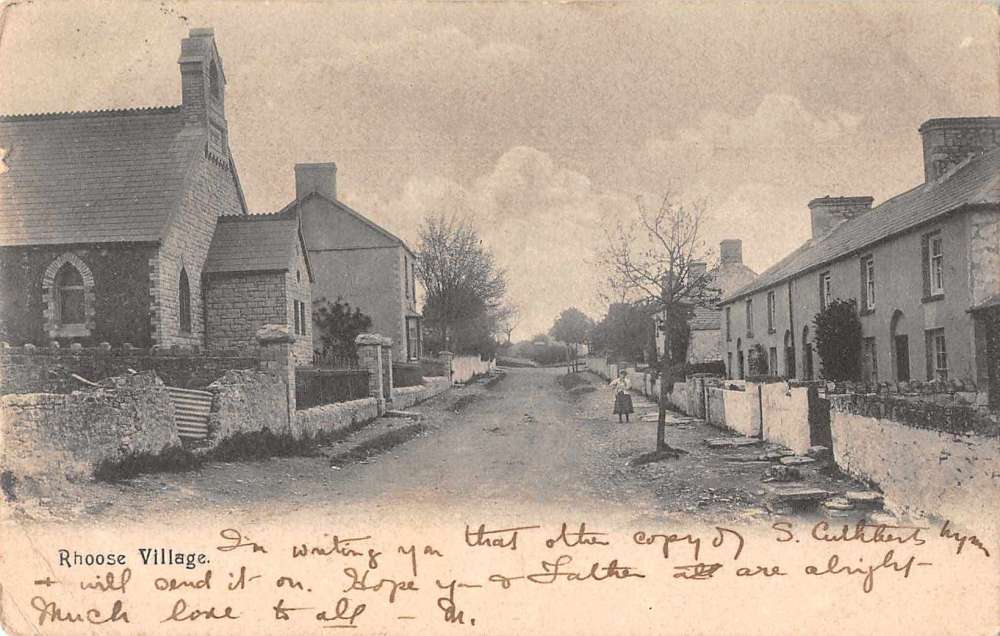 Rhoose Village.
In writing yr that other copy of S. Cuthberts hymn
+ will send it on. Hope you & Father are alright -
Much love to all - M.